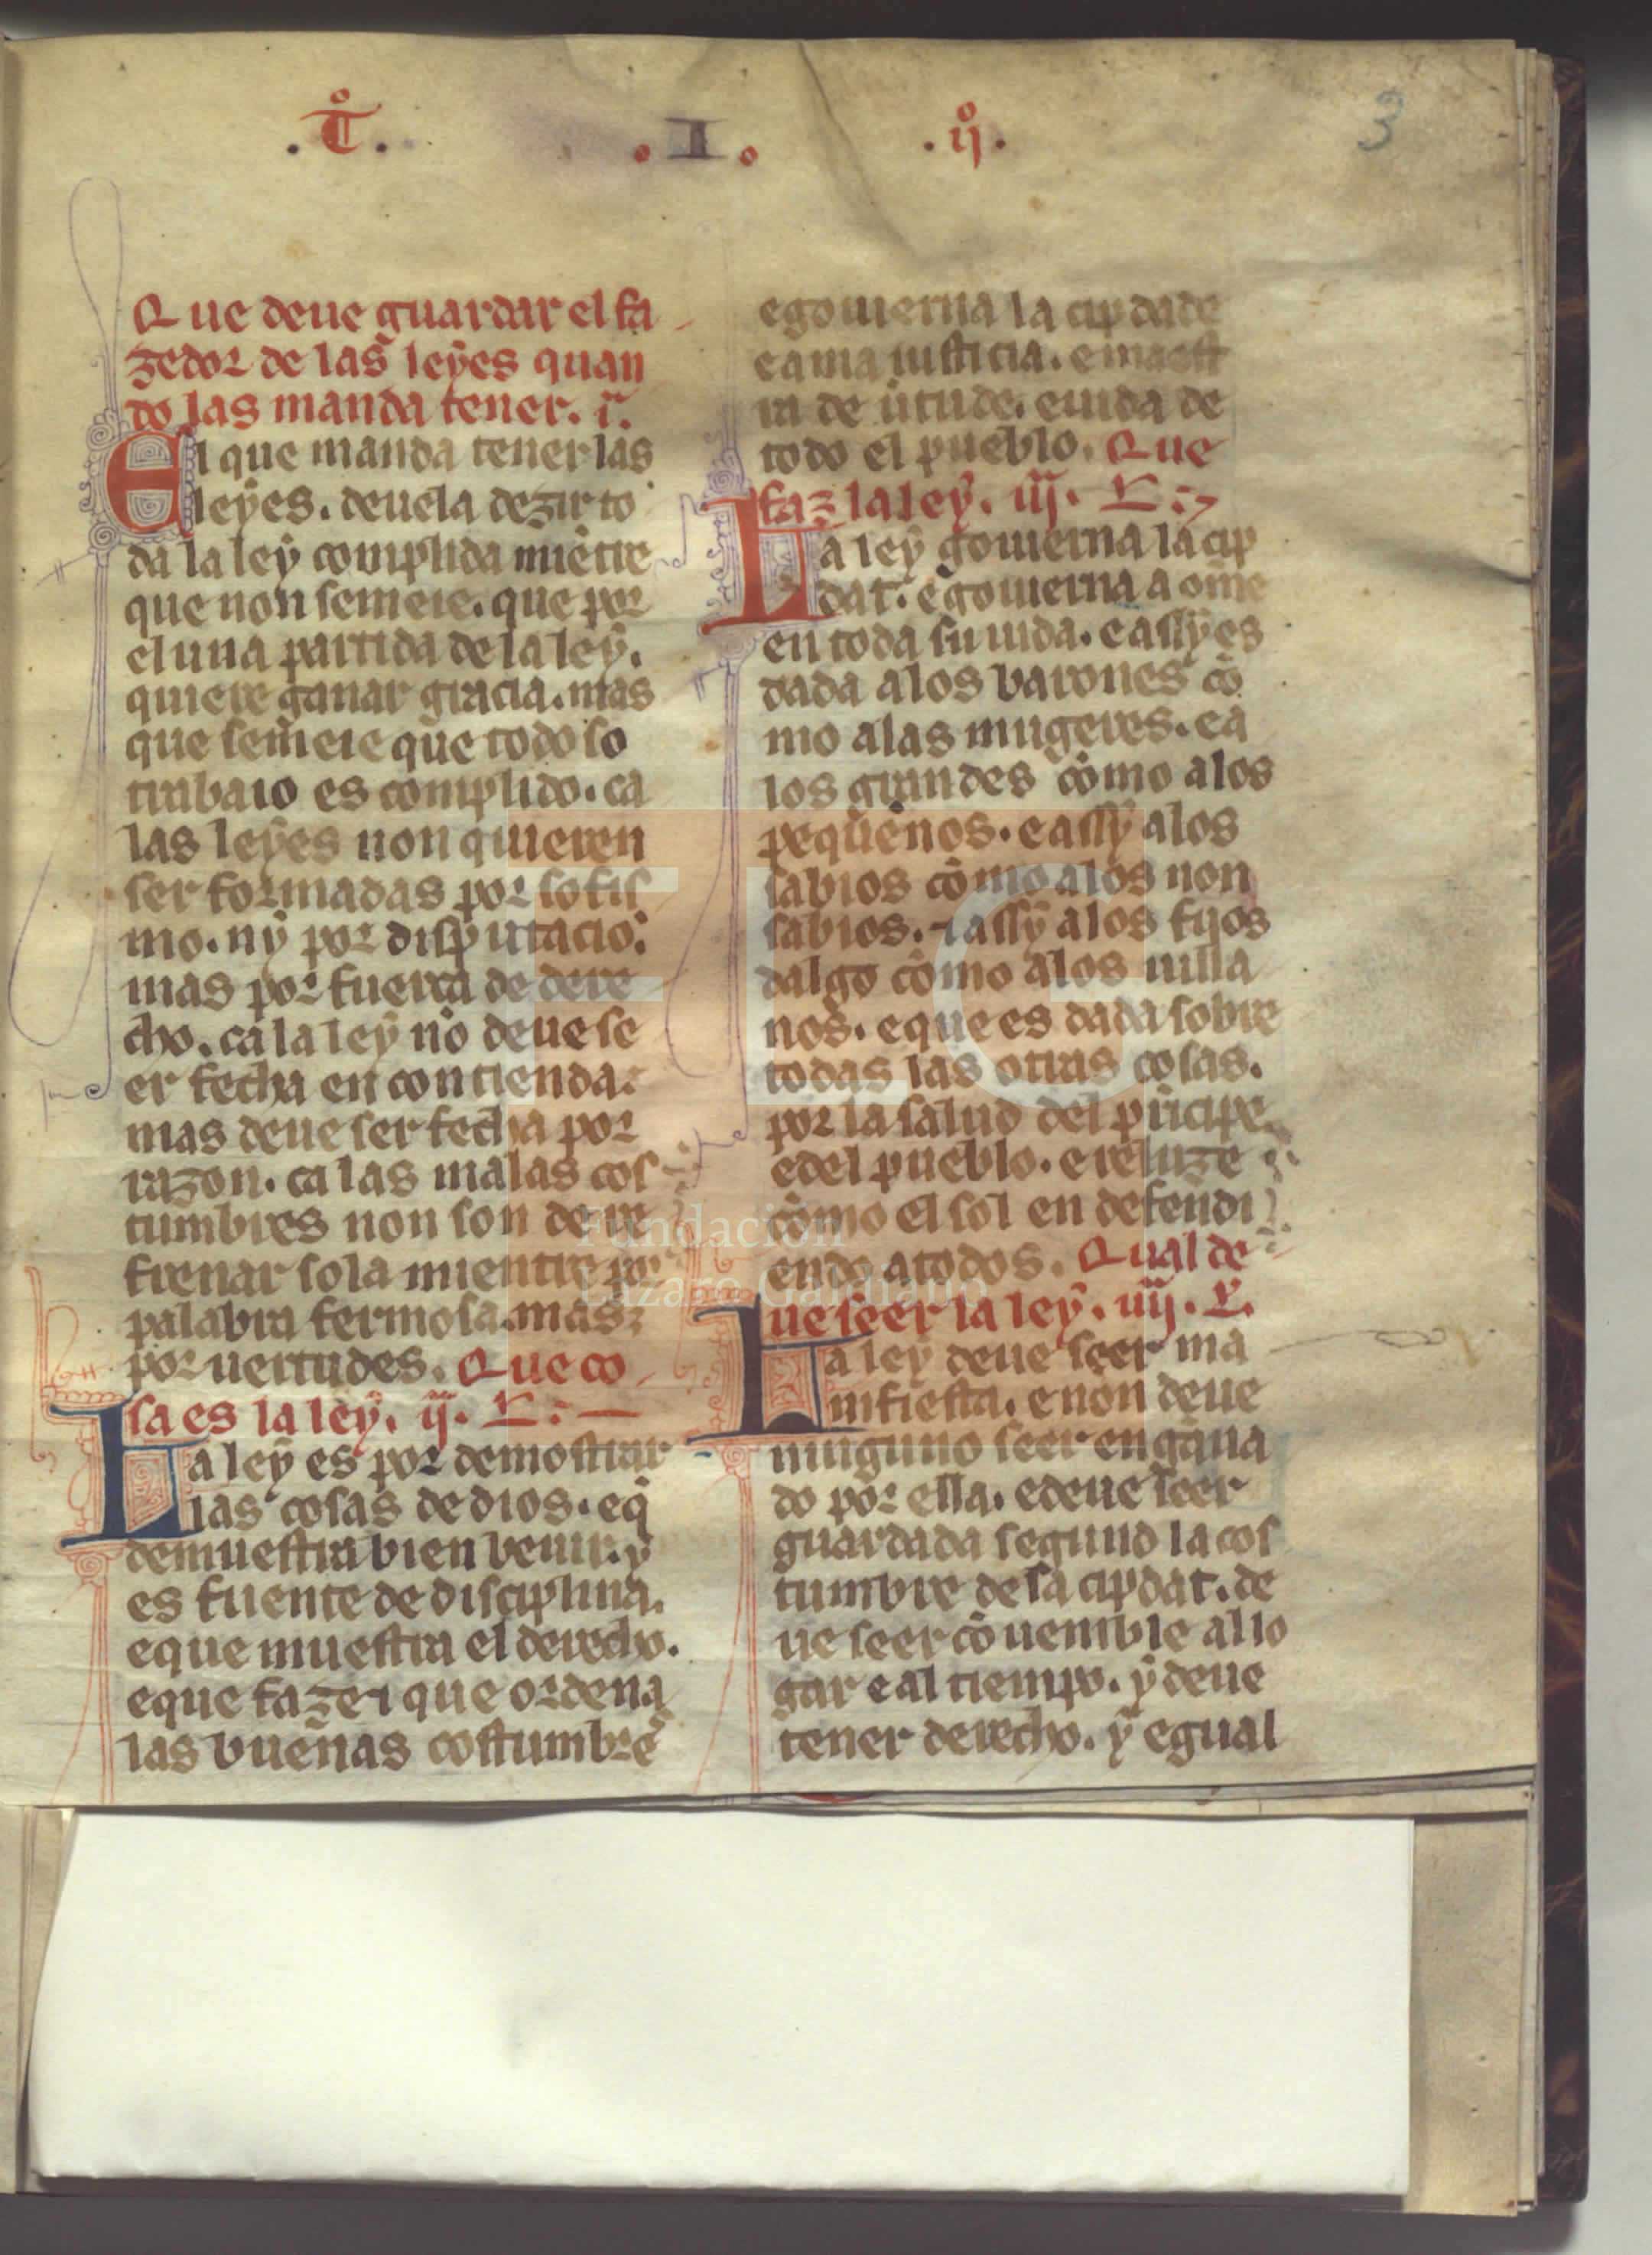 .Tº. .I. .ijº. 3
Que deue guardar el fa
zedor de las leyes quan
do las manda tener. i.ª
El que manda tener las
leyes. deuela dezir to
da la ley complida miẽtre
que non semeie. que por
el una partida de la ley.
quiere ganar gracia. mas
que semeie que todo so
trabaio es complido. ca
las leyes non quieren
ser formadas por sofis
mo. nỹ por disputacio.
mas por fuerça de dere
cho. ca la ley nõ deue se
er fecha en contienda.
mas deue ser fecha por
razon. ca las malas cos
tumbres non son de re
frenar sola mientre por
palabra fermosa. mas
por uertudes. Que co
sa es la ley. ij.ª L.
La ley es por demostrar
las cosas de dios. e q̃
demuestra bien beuir. y
es fuente de disciplina.
e que muestra el derecho.
e que faze ⁊ que ordena
las buenas costumbre
e gouierna la cipdade
e ama iusticia. e maest
ra de ũtude. e uida de
todo el pueblo. Que
faz la ley. iij.ª L.
La ley gouierna la cip
dat. e gouierna a om̃e
en toda su uida. e assy es
dada a los barones cõ
mo a las mugeres. e a
los grandes cõmo a los
pequẽnos. e assy a los
sabios cõmo a los non
sabios. ⁊ assy a los fijos
dalgo cõmo a los uilla
nos. e que es dada sobre
todas las otras cosas.
por la salud del pñcipe.
e del pueblo. e reluze
cõmo el sol en defendi
endo a todos. Qual de
ue seer la ley. iiij.ª L.
La ley deue seer ma
nifiesta. e non deue
ninguno seer engana
do por ella. e deue seer
guardada segund la cos
tumbre de la cipdat. de
ue seer cõuenible al lo
gar e al tiempo. y deue
tener derecho. y egual
FLG
Fundación
Lázaro Galdiano